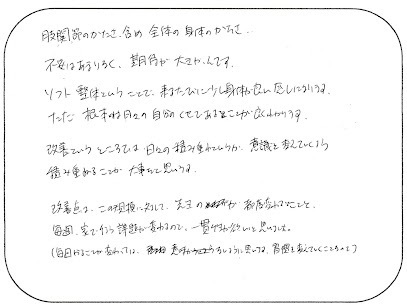 股関節のかたさ、含め 全体の身体のかたさ。
不安はあまりなく、期待が大きかったです。
ソフト整体ということで、来るたびに少し身体が良い感じになります。
ただ 根本は日々の自分のくせであることが良くわかります。
改善というところでは 日々の積み重ねというか、意識を変えていくよう
積み重ねることが 大事だと思います。
改善点は、この現状に対して、先生の が都度変わってたこと、
毎回、家で行う課題が変わるので、一貫性がほしいと思いました。
(毎日やることが変わっては、 意味が ように思える、習慣を変えていくことなので)